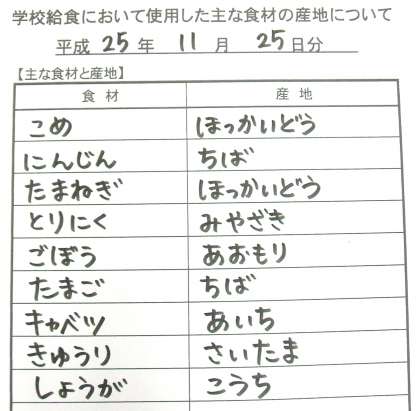 学校給食において使用した主な食材の産地について
平成 25 年 11 月 25 日分
【主な食材と産地】
食材 産地
こめ ほっかいどう
にんじん ちば
たまねぎ ほっかいどう
とりにく みやざき
ごぼう あおもり
たまご ちば
キャベツ あいち
きゅうり さいたま
しょうが こうち